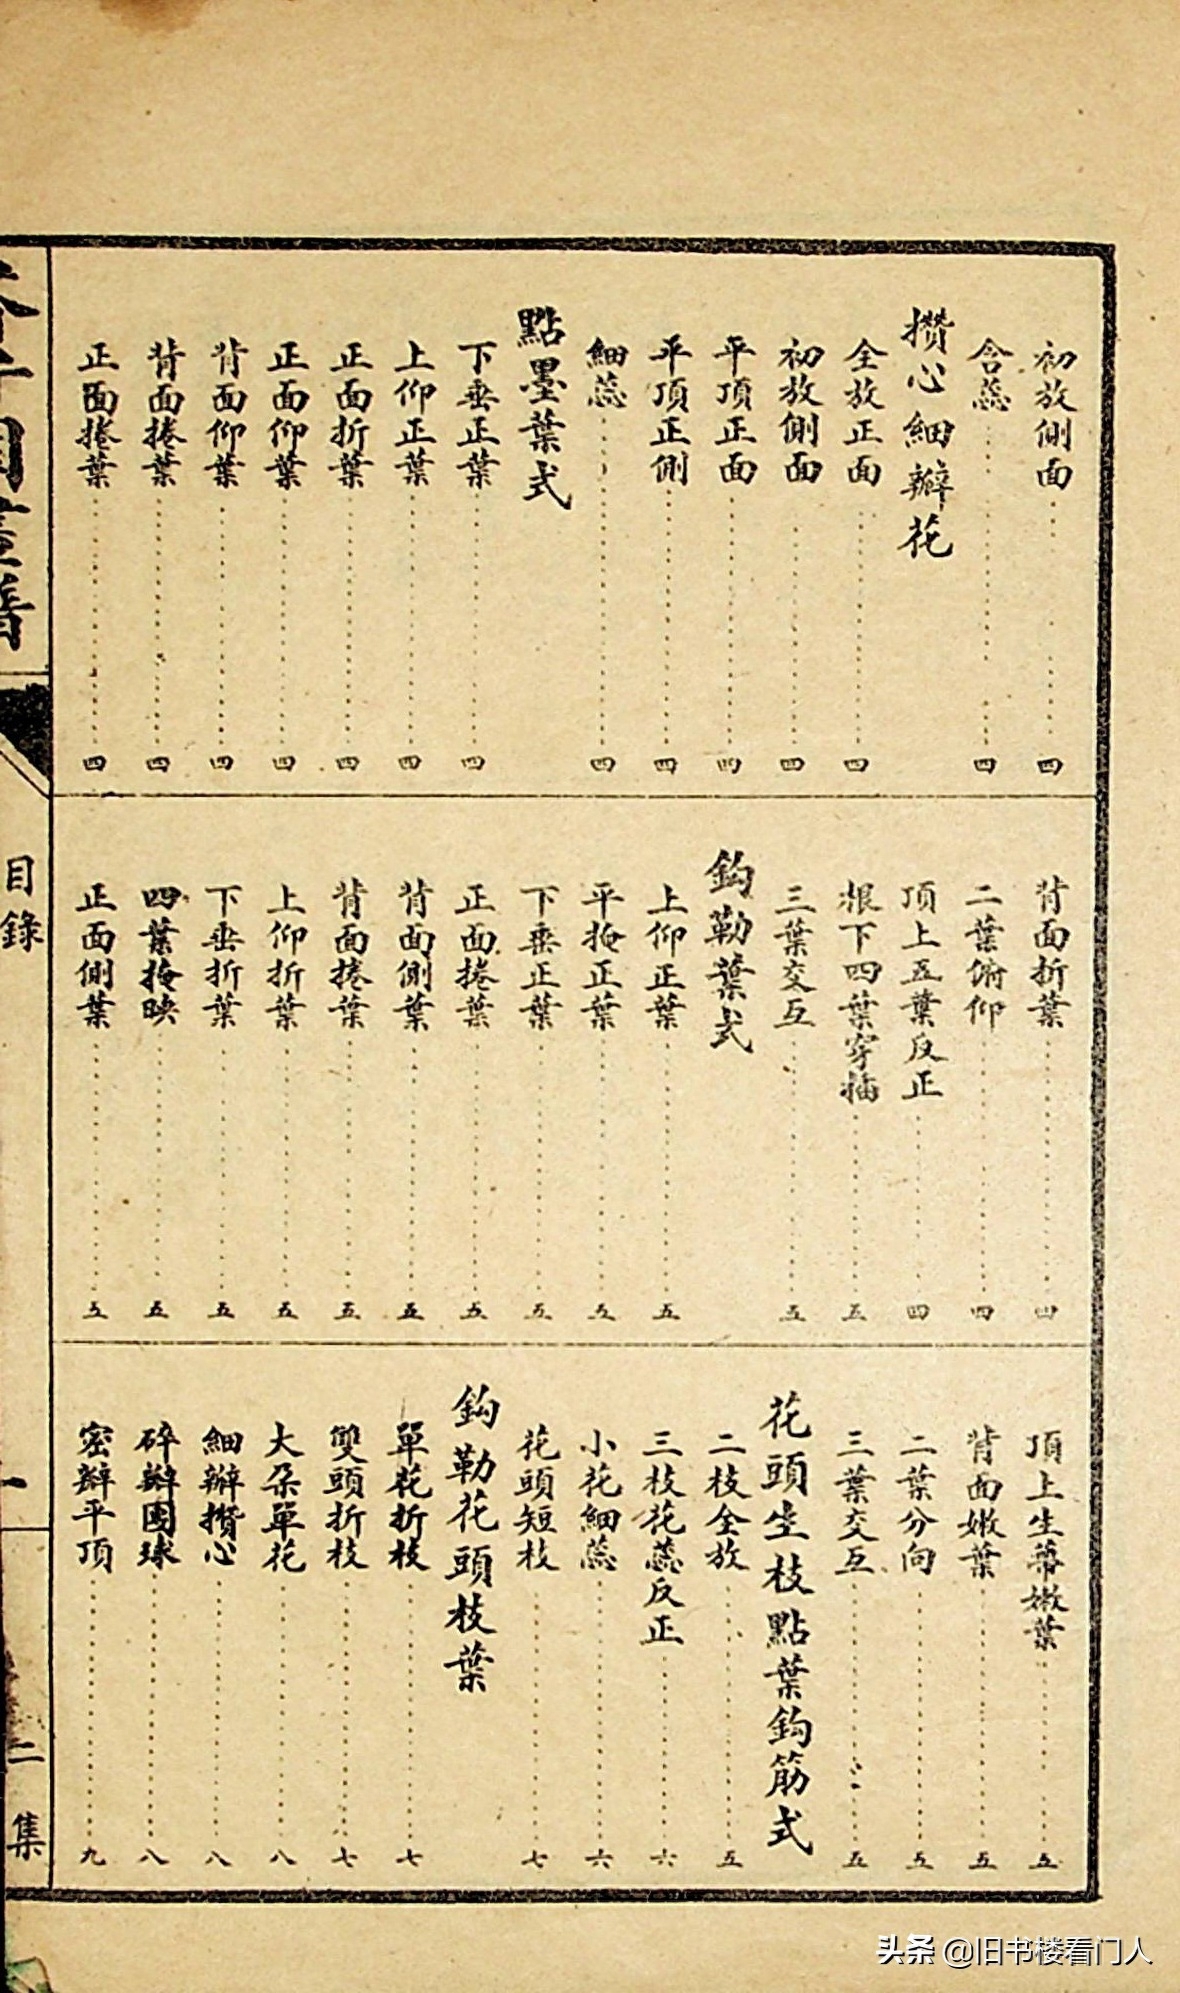 初放側面……四
含蕊……四
攢心細瓣花
全放正面……四
初放側面……四
平頂正面……四
平頂正側……四
細蕊……四
點墨葉式
下垂正葉……四
上仰正葉……四
正面折葉……四
正面仰葉……四
背面仰葉……四
背面捲葉……四
正面捲葉……四
背面折葉……四
二葉俯仰……四
頂上五葉反正……四
根下四葉穿插……五
三葉交互……五
鈎勒葉式
上仰正葉……五
平掩正葉……五
下垂正葉……五
正面捲葉……五
背面側葉……五
背面捲葉……五
上仰折葉……五
下垂折葉……五
四葉掩映……五
正面側葉……五
頂上生蒂嫩葉……五
背面嫩葉……五
二葉分向……五
三葉交互……五
花頭生枝點葉鈎筋式
二枝全放……五
三枝花蕊反正……六
小花細蕊……六
花頭短枝……七
鈎勒花頭枝葉
單花折枝……七
雙頭折枝……七
大朶單花……八
細瓣攢心……八
碎瓣團球……八
密瓣平頂……九
目錄
二集
头条 @旧书楼看门人